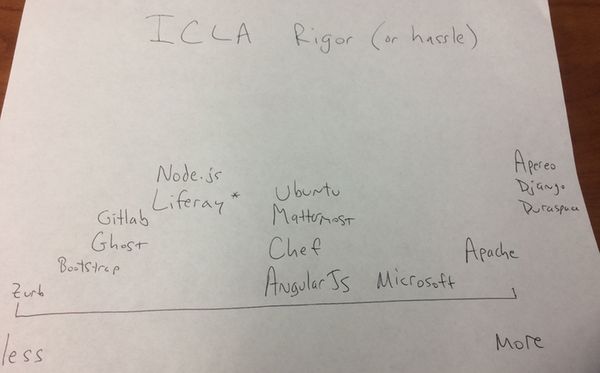 ICLA Rigor (or hassle)
Apereo
Node.js
Django
Liferay *
Ubuntu
Duraspace
Gitlab
Mattermost
Ghost
Chef
Apache
Bootstrap
AngularJS
Microsoft
Zurb
less
More